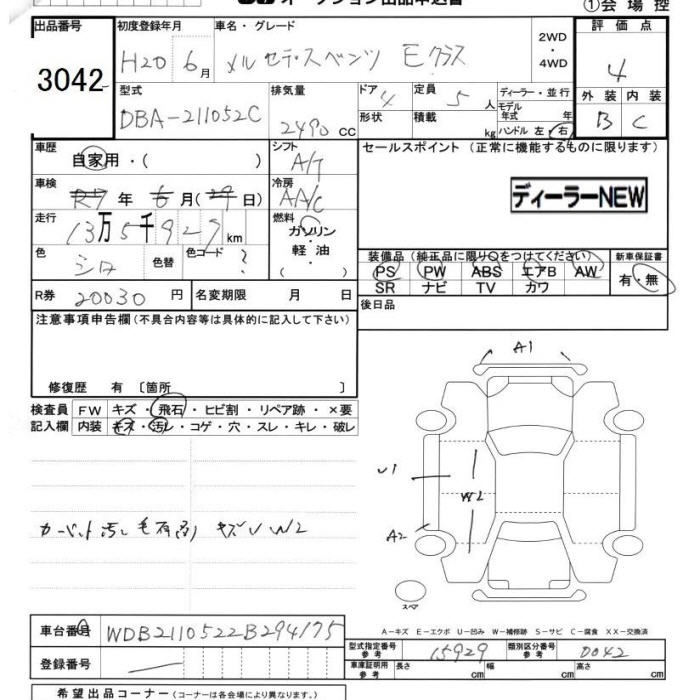 オークション出品申込書
①会場控
出品番号
3042
初度登録年月
H20 6月
車名・グレード
メルセデス・ベンツ Eクラス
2WD
・
4WD
評価点
4
外装 内装
B C
型式
DBA-211052C
排気量
2490 CC
ドア 4
定員 5人
形状
積載 kg
ディーラー・並行
モデル年式 年
ハンドル 左・右
車歴
自家用・( )
シフト
A/T
セールスポイント (正常に機能するものに限ります)
ディーラーNEW
車検
R7年 6月(29日)
冷房
AA/C
走行
13万5千929km
燃料
ガソリン
・
軽油
( )
色
シロ
色替
色コード ?
装備品(純正品に限り○をつけてください)
新車保証書
PS PW ABS エアB AW
SR ナビ TV カワ
有・無
R券 20030円
名変期限 月 日
後日品
注意事項申告欄(不具合内容等は具体的に記入して下さい)
修復歴 有 〔箇所 〕
検査員記入欄
FW キズ・飛石・ヒビ割・リペア跡・×要
内装 キズ・汚れ・コゲ・穴・スレ・キレ・破レ
A1
U1
W2
A2
スペア
カーペット汚レ
キズU W2
A-キズ E-エクボ U-凹み W-補修跡 S-サビ C-腐食 XX-交換済
車台番号 WDB2110522B294175
登録番号
型式指定番号 参考 15929
類別区分番号 参考 0042
車庫証明用 参考 長さ cm 幅 cm 高さ cm
希望出品コーナー(コーナーは各会場により異なります。)